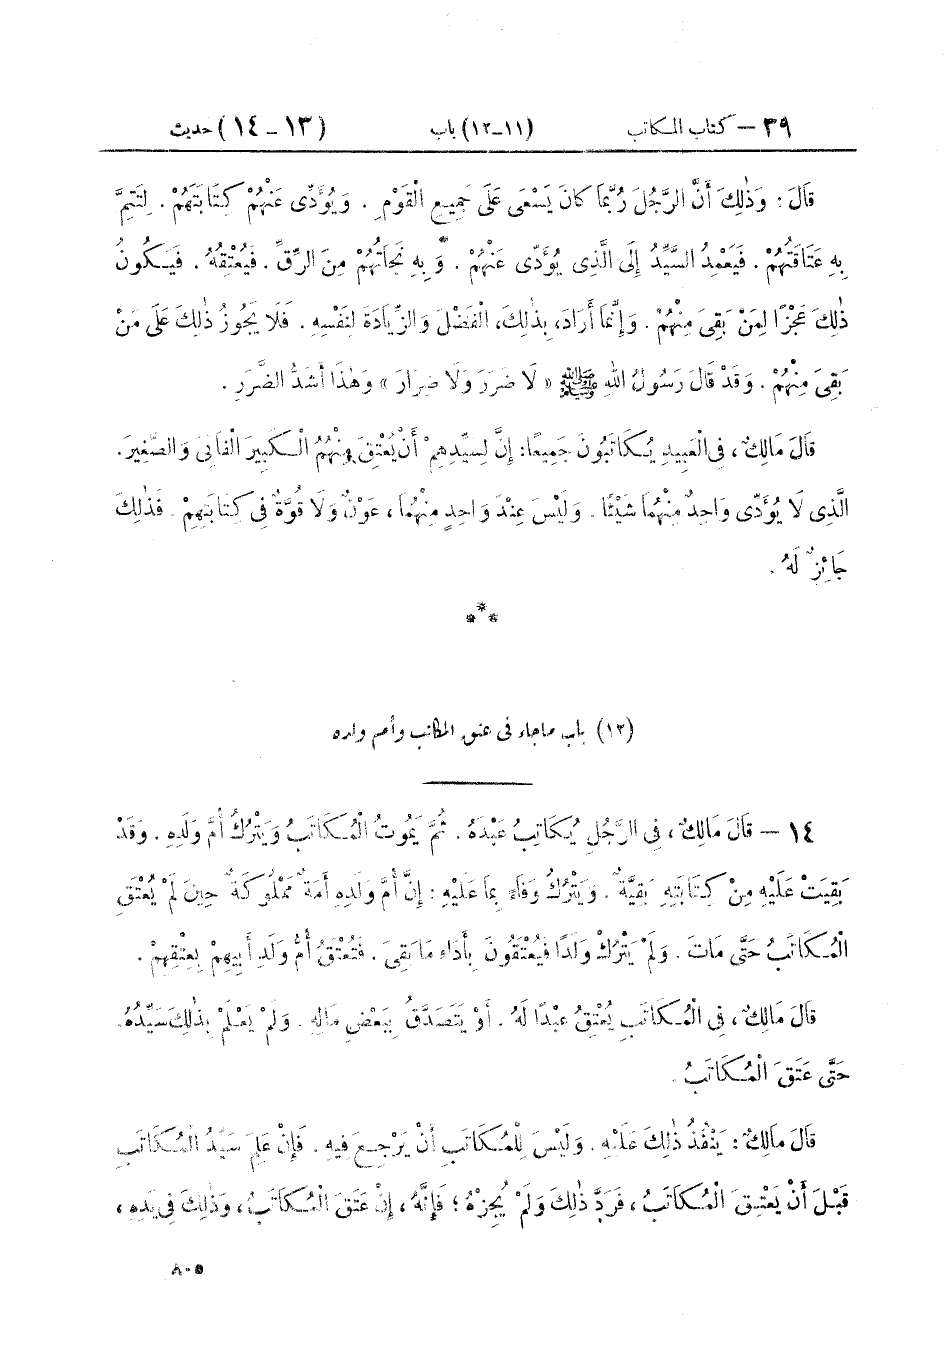 ٣٩ – كتاب المكاتب (١١-١٢) باب (١٣-١٤) حديث
قَالَ : وَذٰلِكَ أَنَّ الرَّجُلَ رُبَّمَا كَانَ يَسْعَى عَلَى جَمِيعِ الْقَوْمِ . وَيُؤَدِّى عَنْهُمْ كِتَابَتَهُمْ . لِتَتِمَّ
بِهِ عَتَاقَتُهُمْ . فَيَعْمِدُ السَّيِّدُ إِلَى الَّذِى يُؤَدِّى عَنْهُمْ . وَبِهِ نَجَاتُهُمْ مِنَ الرِّقِّ . فَيُعْتِقُهُ . فَيَكُونُ
ذٰلِكَ عَجْزًا لِمَنْ بَقِىَ مِنْهُمْ . وَإِنَّمَا أَرَادَ، بِذٰلِكَ، الْفَضْلَ وَالزِّيَادَةَ لِنَفْسِهِ . فَلَا يَجُوزُ ذٰلِكَ عَلَى مَنْ
بَقِىَ مِنْهُمْ . وَقَدْ قَالَ رَسُولُ اللهِ ﷺ « لَا ضَرَرَ وَلَا ضِرَارَ » وَهٰذَا أَشَدُّ الضَّرَرِ .
قَالَ مَالِكٌ، فِى الْعَبِيدِ يُكَاتَبُونَ جَمِيعًا: إِنَّ لِسَيِّدِهِمْ أَنْ يُعْتِقَ مِنْهُمُ الْكَبِيرَ الْفَانِىَ وَالصَّغِيرَ.
الَّذِى لَا يُؤَدِّى وَاحِدٌ مِنْهُمَا شَيْئًا . وَلَيْسَ عِنْدَ وَاحِدٍ مِنْهُمَا ، عَوْنٌ وَلَا قُوَّةٌ فِى كِتَابَتِهِمْ . فَذٰلِكَ
جَائِزٌ لَهُ .
***
(١٢) باب ماجاء فى عتق المكاتب وأم ولده
١٤ – قَالَ مَالِكٌ ، فِى الرَّجُلِ يُكَاتِبُ عَبْدَهُ . ثُمَّ يَمُوتُ الْمُكَاتَبُ وَيَتْرُكُ أُمَّ وَلَدِهِ . وَقَدْ
بَقِيَتْ عَلَيْهِ مِنْ كِتَابَتِهِ بَقِيَّةٌ . وَيَتْرُكُ وَفَاءً بِمَا عَلَيْهِ : إِنَّ أُمَّ وَلَدِهِ أَمَةٌ مَمْلُوكَةٌ حِينَ لَمْ يُعْتَقِ
الْمُكَاتَبُ حَتَّى مَاتَ . وَلَمْ يَتْرُكْ وَلَدًا فَيُعْتَقُونَ بِأَدَاءِ مَا بَقِىَ . فَتُعْتَقُ أُمُّ وَلَدِ أَبِيهِمْ بِعِتْقِهِمْ .
قَالَ مَالِكٌ ، فِى الْمُكَاتَبِ يُعْتِقُ عَبْدًا لَهُ . أَوْ يَتَصَدَّقُ بِبَعْضِ مَالِهِ . وَلَمْ يَعْلَمْ بِذٰلِكَ سَيِّدُهُ.
حَتَّى عَتَقَ الْمُكَاتَبُ .
قَالَ مَالِكٌ : يَنْفُذُ ذٰلِكَ عَلَيْهِ . وَلَيْسَ لِلْمُكَاتَبِ أَنْ يَرْجِعَ فِيهِ . فَإِنْ عَلِمَ سَيِّدُ الْمُكَاتَبِ
قَبْلَ أَنْ يَعْتِقَ الْمُكَاتَبُ ، فَرَدَّ ذٰلِكَ وَلَمْ يُجِزْهُ ؛ فَإِنَّهُ ، إِنْ عَتَقَ الْمُكَاتَبُ ، وَذٰلِكَ فِى يَدِهِ ،
٨٠٥